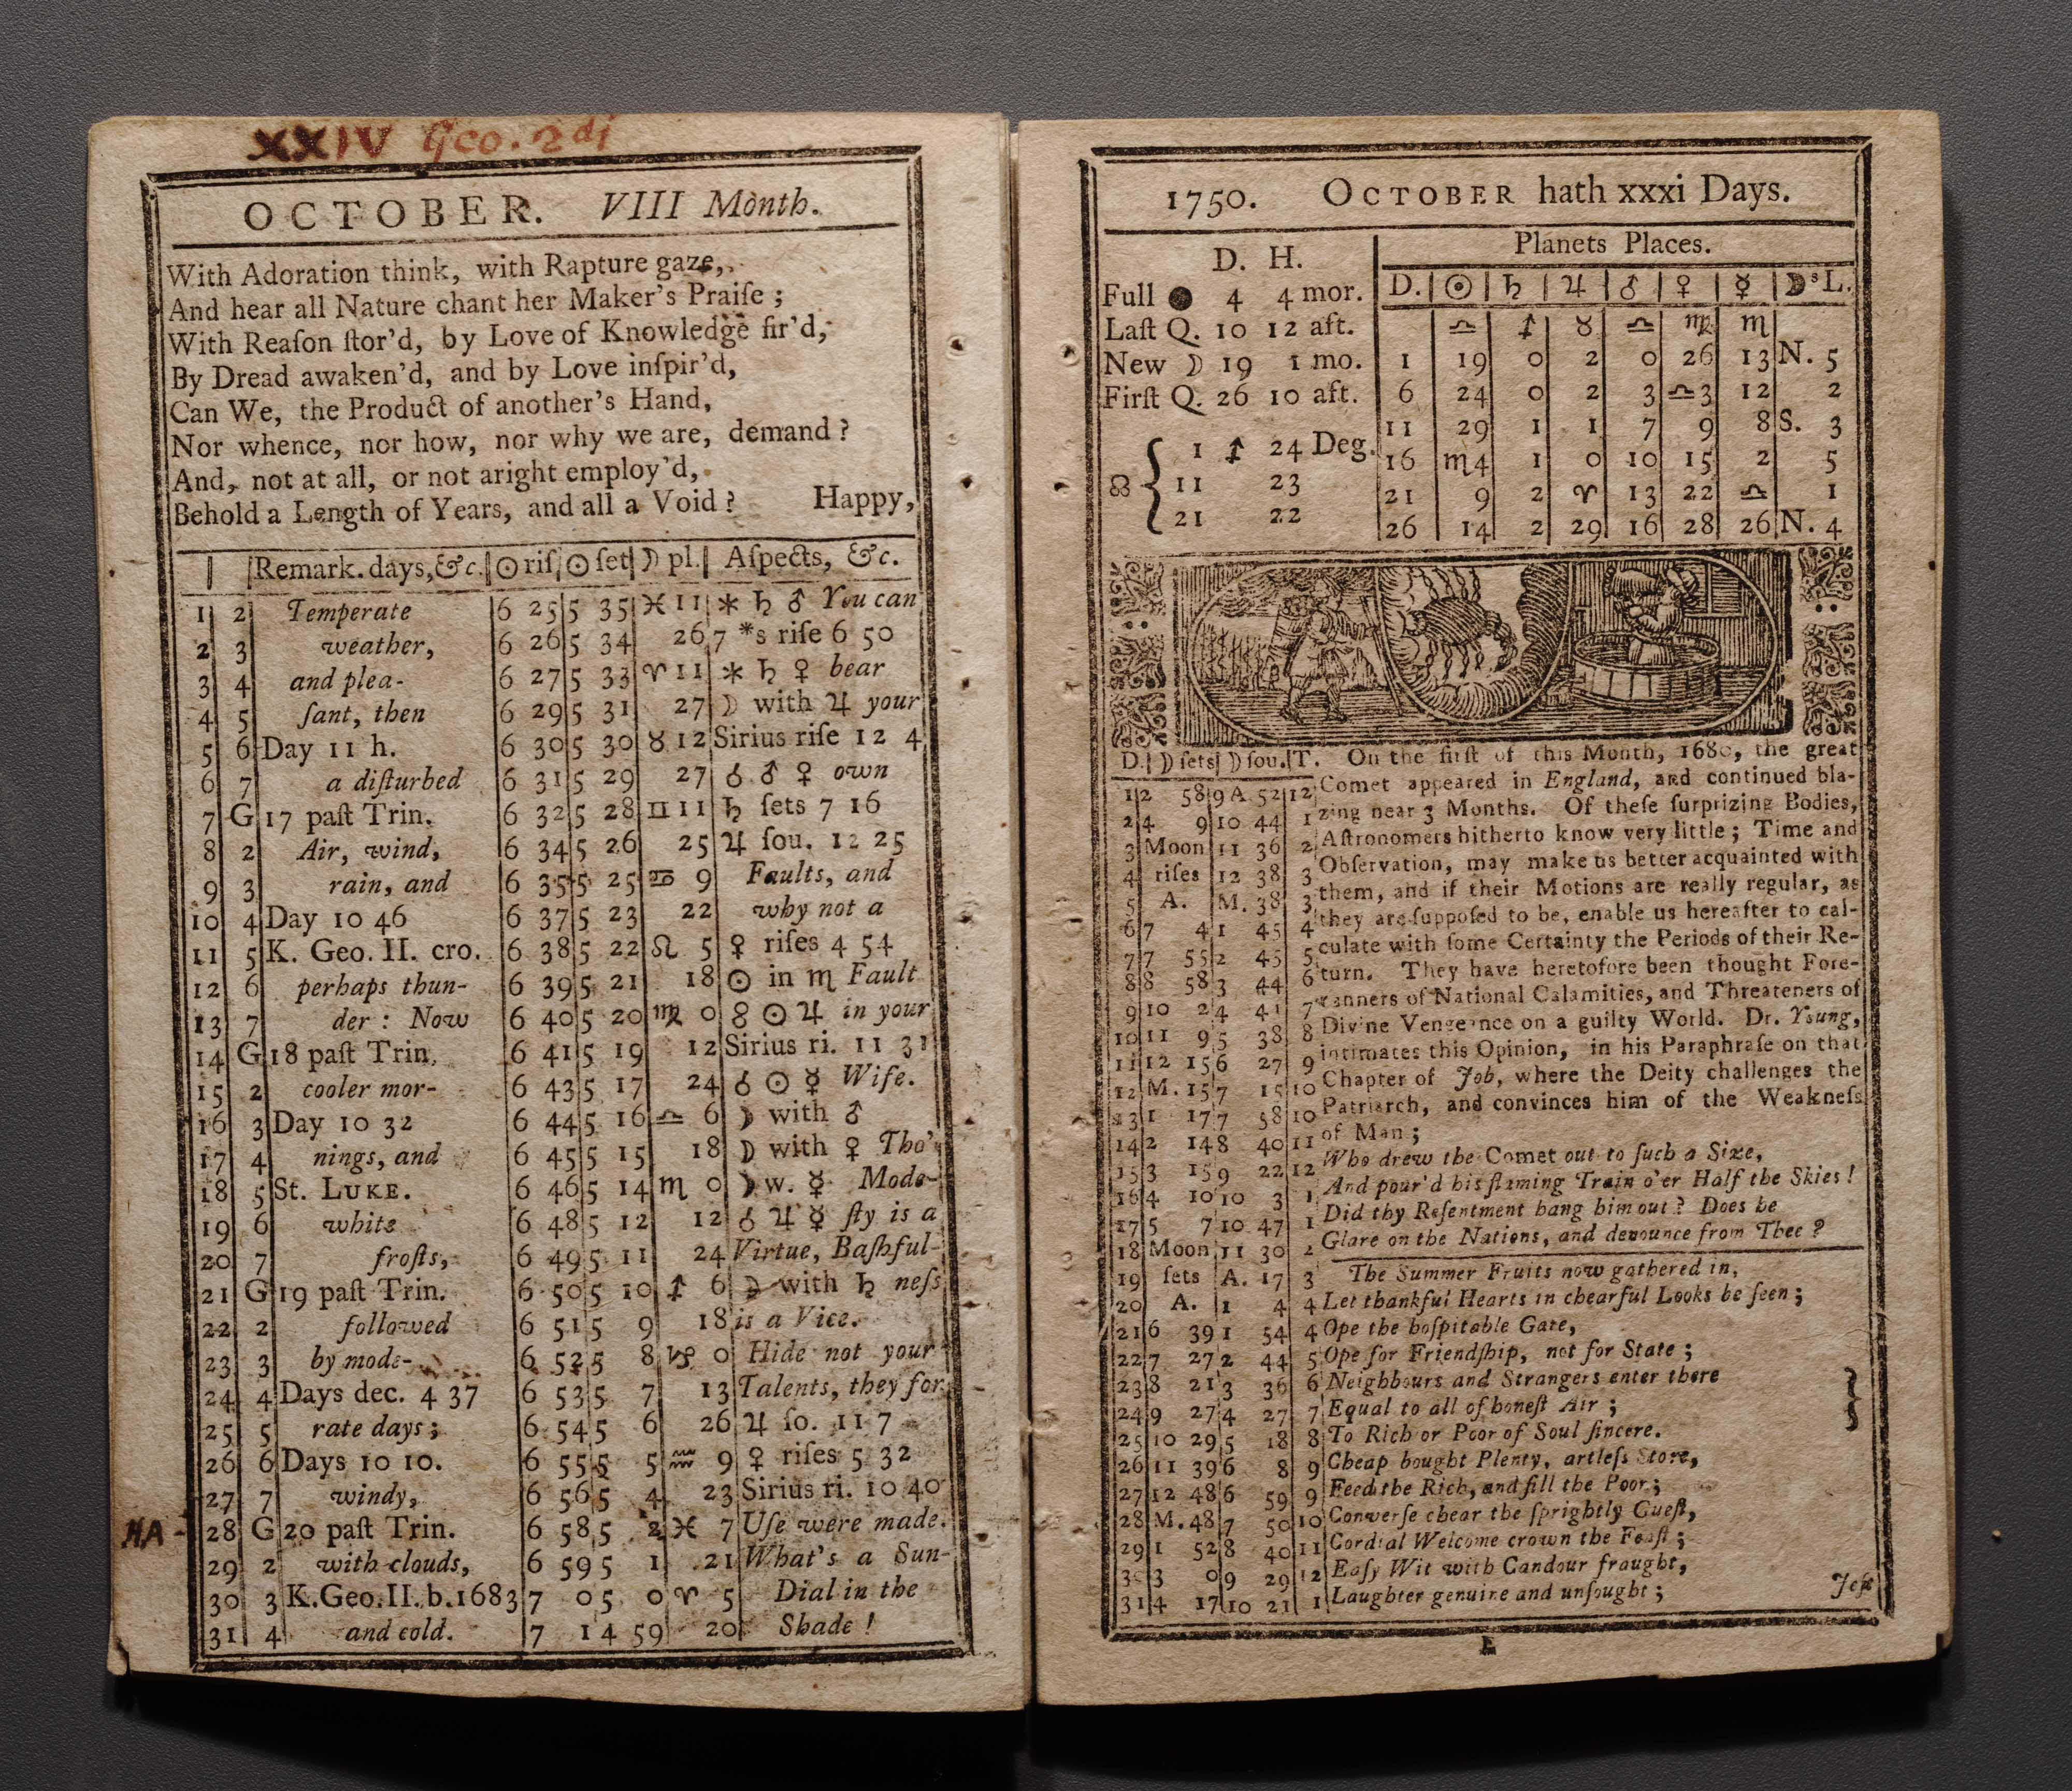 XXIV Geo. 2di
OCTOBER. VIII Month.
With Adoration think, with Rapture gaze,
And hear all Nature chant her Maker's Praiſe ;
With Reaſon ſtor'd, by Love of Knowledge fir'd,
By Dread awaken'd, and by Love inſpir'd,
Can We, the Product of another's Hand,
Nor whence, nor how, nor why we are, demand ?
And, not at all, or not aright employ'd,
Behold a Length of Years, and all a Void ? Happy,
Remark. days, &c. ☉ riſ ☉ ſet ☽ pl. Aſpects, &c.
1 2 Temperate 6 25 5 35 ♓ 11 ⚹ ♄ ♂ You can
2 3 weather, 6 26 5 34 26 7 *s riſe 6 50
3 4 and plea- 6 27 5 33 ♈ 11 ⚹ ♄ ♀ bear
4 5 ſant, then 6 29 5 31 27 ☽ with ♃ your
5 6 Day 11 h. 6 30 5 30 ♉ 12 Sirius riſe 12 4
6 7 a diſturbed 6 31 5 29 27 ☌ ♂ ♀ own
7 G 17 paſt Trin. 6 32 5 28 ♊ 11 ♄ ſets 7 16
8 2 Air, wind, 6 34 5 26 25 ♃ ſou. 12 25
9 3 rain, and 6 35 5 25 ♋ 9 Faults, and
10 4 Day 10 46 6 37 5 23 22 why not a
11 5 K. Geo. II. cro. 6 38 5 22 ♌ 5 ♀ riſes 4 54
12 6 perhaps thun- 6 39 5 21 18 ☉ in ♏ Fault
13 7 der : Now 6 40 5 20 ♍ 0 ☍ ☉ ♃ in your
14 G 18 paſt Trin. 6 41 5 19 12 Sirius ri. 11 31
15 2 cooler mor- 6 43 5 17 24 ☌ ☉ ☿ Wife.
16 3 Day 10 32 6 44 5 16 ♎ 6 ☽ with ♂
17 4 nings, and 6 45 5 15 18 ☽ with ♀ Tho'
18 5 St. LUKE. 6 46 5 14 ♏ 0 ☽ w. ☿ Mode-
19 6 white 6 48 5 12 12 ☌ ♃ ☿ ſty is a
20 7 froſts, 6 49 5 11 24 Virtue, Baſhful-
21 G 19 paſt Trin. 6 50 5 10 ♐ 6 ☽ with ♄ neſs
22 2 followed 6 51 5 9 18 is a Vice.
23 3 by mode- 6 52 5 8 ♑ 0 Hide not your
24 4 Days dec. 4 37 6 53 5 7 13 Talents, they for
25 5 rate days ; 6 54 5 6 26 ♃ ſo. 11 7
26 6 Days 10 10. 6 55 5 5 ♒ 9 ♀ riſes 5 32
27 7 windy, 6 56 5 4 23 Sirius ri. 10 40
HA - 28 G 20 paſt Trin. 6 58 5 2 ♓ 7 Uſe were made.
29 2 with clouds, 6 59 5 1 21 What's a Sun-
30 3 K. Geo. II. b. 1683 7 0 5 0 ♈ 5 Dial in the
31 4 and cold. 7 1 4 59 20 Shade !
1750. OCTOBER hath xxxi Days.
D. H.
Full ● 4 4 mor.
Laſt Q. 10 12 aft.
New ☽ 19 1 mo.
Firſt Q. 26 10 aft.
☊ { 1 ♐ 24 Deg.
11 23
21 22
Planets Places.
D. ☉ ♄ ♃ ♂ ♀ ☿ ☽'s L.
♎ ♐ ♉ ♎ ♍ ♏
1 19 0 2 0 26 13 N. 5
6 24 0 2 3 ♎3 12 2
11 29 1 1 7 9 8 S. 3
16 ♏4 1 0 10 15 2 5
21 9 2 ♈ 13 22 ♎ 1
26 14 2 29 16 28 26 N. 4
D. ☽ ſets ☽ ſou. T.
1 2 58 9 A 52 12
2 4 9 10 44 1
3 Moon 11 36 2
4 riſes 12 38 3
5 A. M. 38 3
6 7 4 1 45 4
7 7 55 2 45 5
8 8 58 3 44 6
9 10 2 4 41 7
10 11 9 5 38 8
11 12 15 6 27 9
12 M. 15 7 15 10
13 1 17 7 58 10
14 2 14 8 40 11
15 3 15 9 22 12
16 4 10 10 3 1
17 5 7 10 47 1
18 Moon 11 30 2
19 ſets A. 17 3
20 A. 1 4 4
21 6 39 1 54 4
22 7 27 2 44 5
23 8 21 3 36 6
24 9 27 4 27 7
25 10 29 5 18 8
26 11 39 6 8 9
27 12 48 6 59 9
28 M. 48 7 50 10
29 1 52 8 40 11
30 3 0 9 29 12
31 4 17 10 21 1
On the firſt of this Month, 1680, the great
Comet appeared in England, and continued bla-
zing near 3 Months. Of theſe ſurprizing Bodies,
Aſtronomers hitherto know very little ; Time and
Obſervation, may make us better acquainted with
them, and if their Motions are really regular, as
they are ſuppoſed to be, enable us hereafter to cal-
culate with ſome Certainty the Periods of their Re-
turn. They have heretofore been thought Fore-
runners of National Calamities, and Threateners of
Divine Vengeance on a guilty World. Dr. Young,
intimates this Opinion, in his Paraphraſe on that
Chapter of Job, where the Deity challenges the
Patriarch, and convinces him of the Weakneſs
of Man ;
Who drew the Comet out to ſuch a Size,
And pour'd his flaming Train o'er Half the Skies !
Did thy Reſentment hang him out ? Does he
Glare on the Nations, and denounce from Thee ?
The Summer Fruits now gathered in,
Let thankful Hearts in chearful Looks be ſeen ;
Ope the hoſpitable Gate,
Ope for Friendſhip, not for State ;
Neighbours and Strangers enter there
Equal to all of honeſt Air ;
To Rich or Poor of Soul ſincere.
Cheap bought Plenty, artleſs Store,
Feed the Rich, and fill the Poor ;
Converſe chear the ſprightly Gueſt,
Cordial Welcome crown the Feaſt ;
Eaſy Wit with Candour fraught,
Laughter genuine and unſought ;
Jeſt
E